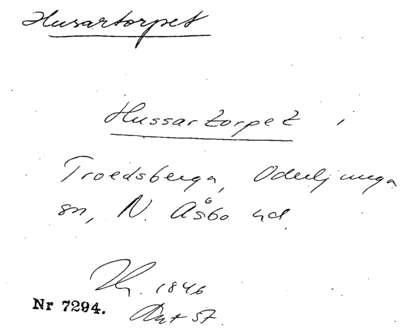 Husartorpet
Hussartorpet i
Troedsberga, Oderljunga
sn, N. Åsbo hd.
1846
Nr 7294.